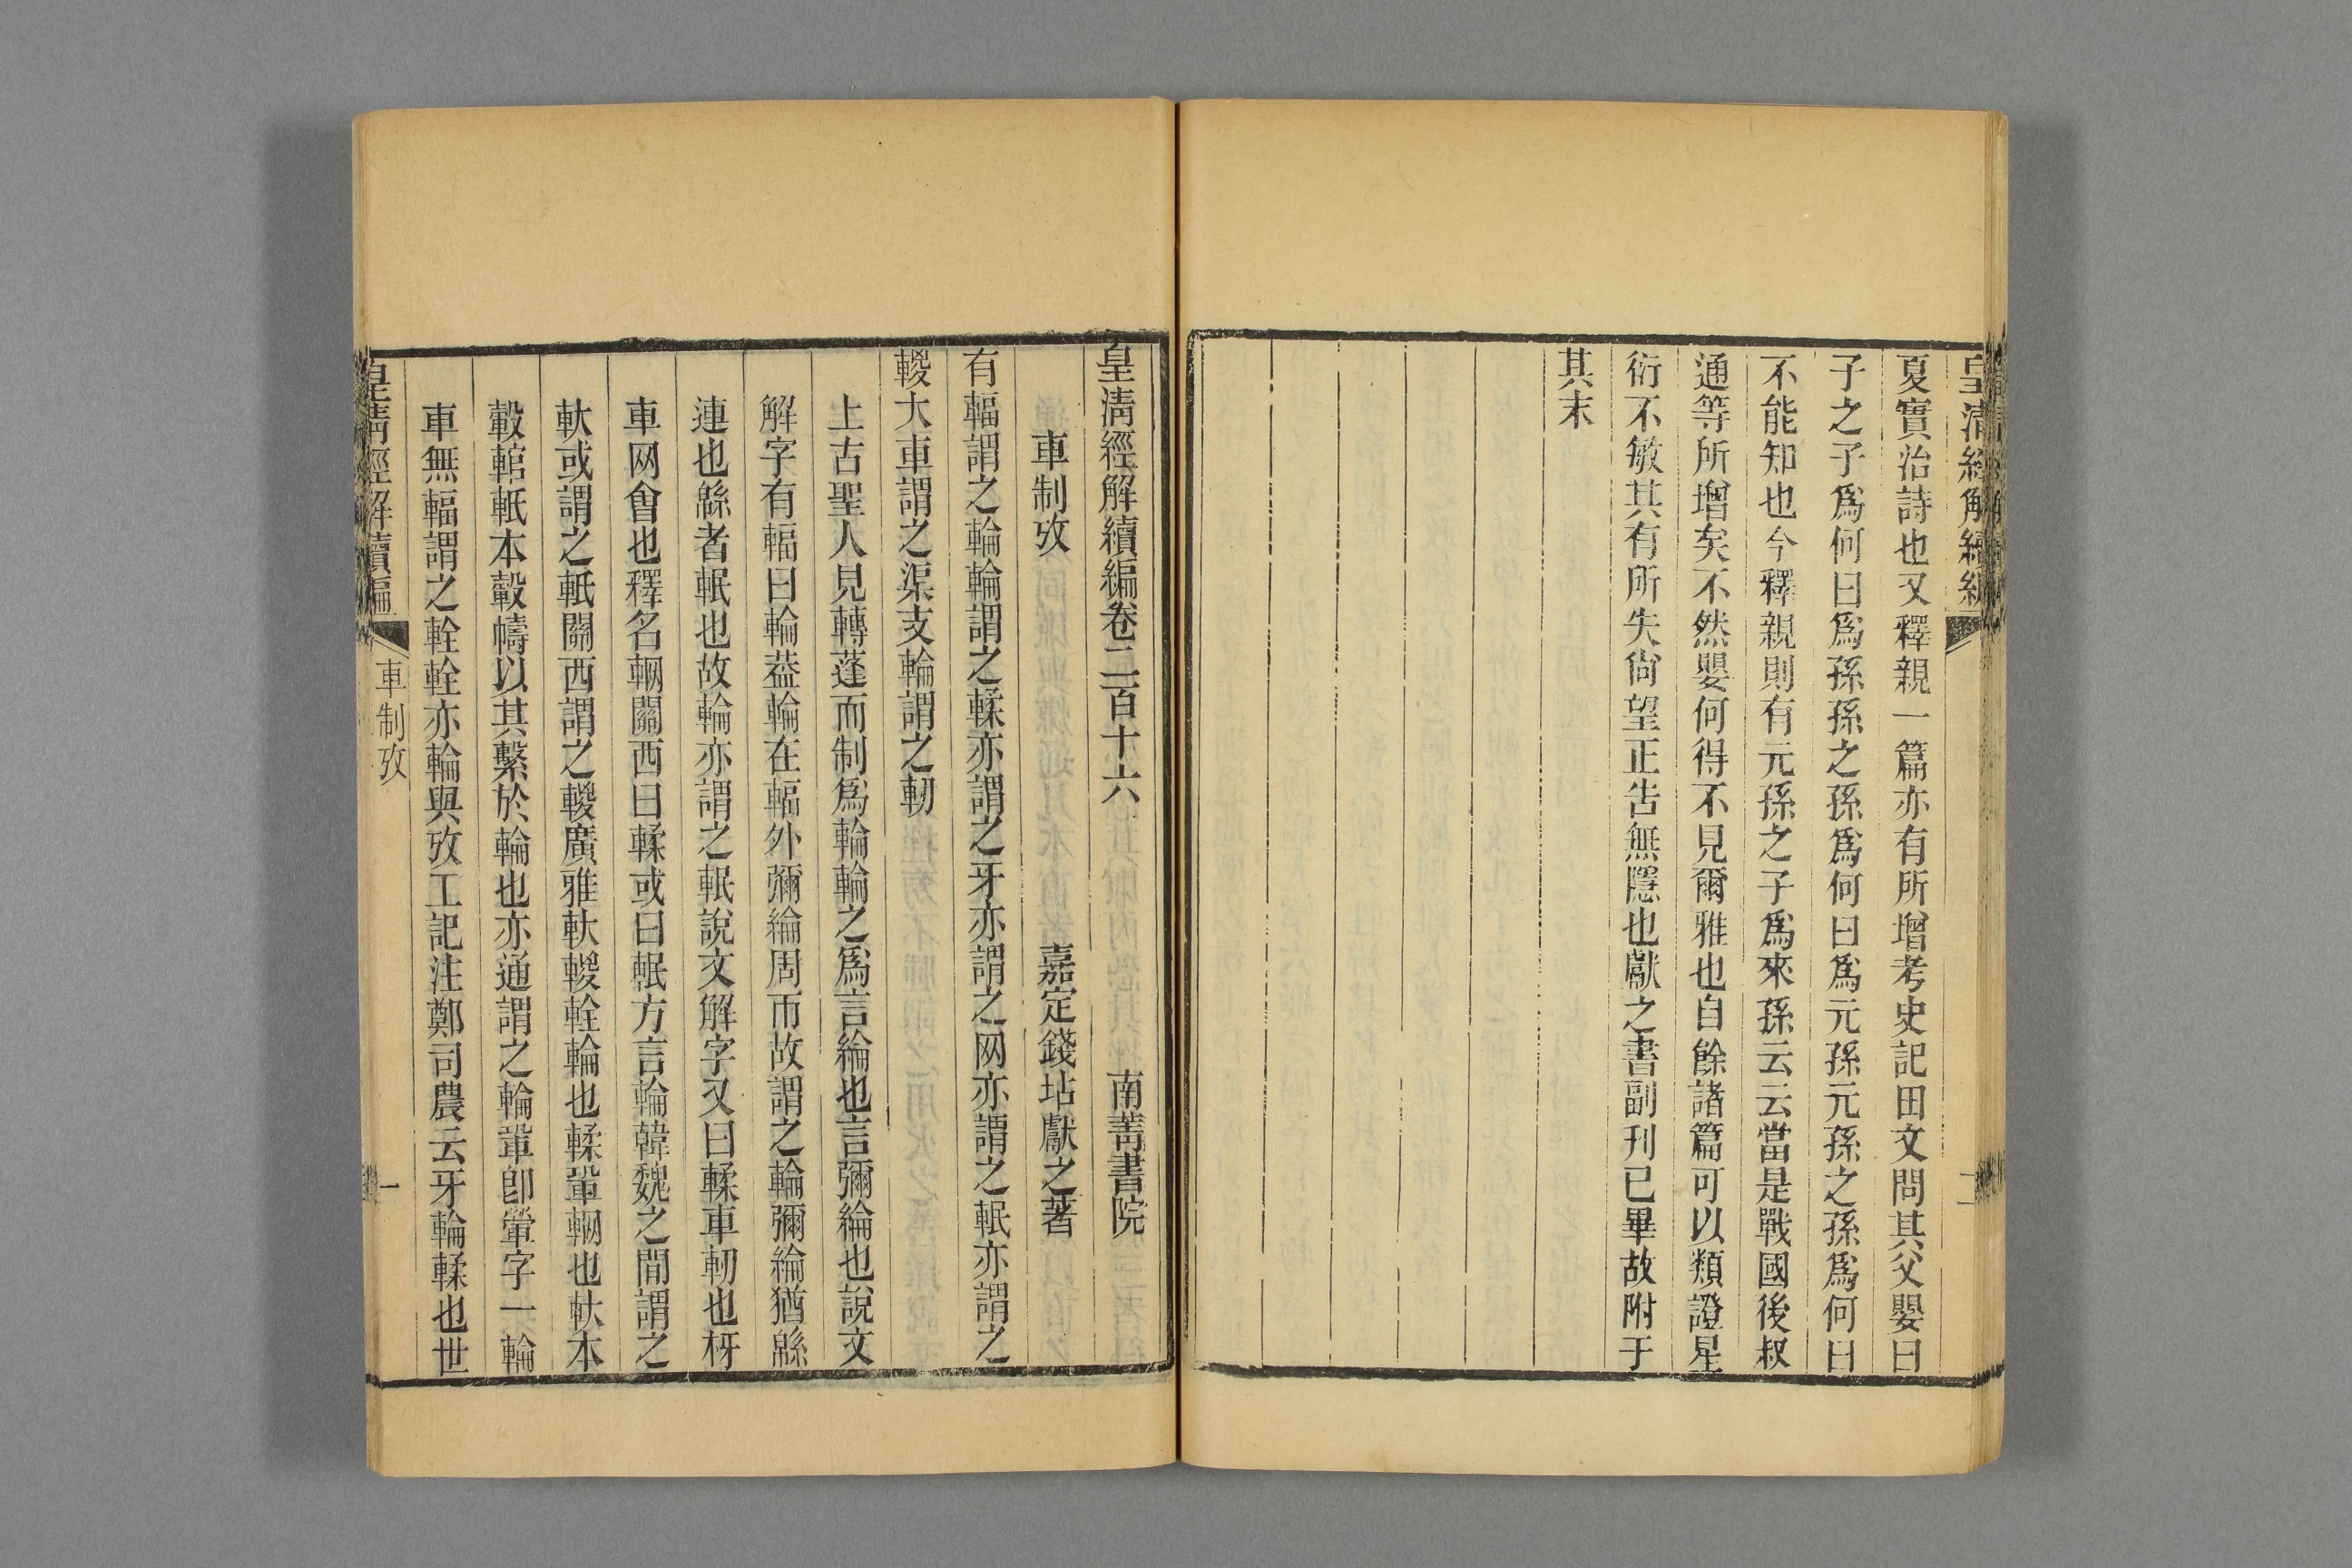 皇清經解續編
夏實治詩也又釋親一篇亦有所增考史記田文問其父嬰曰
子之子爲何曰爲孫孫之孫爲何曰爲元孫元孫之孫爲何曰
不能知也今釋親則有元孫之子爲來孫云云當是戰國後叔
通等所增矣不然嬰何得不見爾雅也自餘諸篇可以類證星
衍不敏其有所失尙望正告無隱也獻之書副刊已畢故附于
其末
皇清經解續編卷二百十六 南菁書院
車制攷 嘉定錢坫獻之著
有輻謂之輪輪謂之輮亦謂之牙亦謂之网亦謂之䡑亦謂之
輚大車謂之渠支輪謂之軔
上古聖人見轉蓬而制爲輪輪之爲言綸也言彌綸也說文
解字有輻曰輪葢輪在輻外彌綸周帀故謂之輪彌綸猶緜
連也緜者䡑也故輪亦謂之䡑說文解字又曰輮車軔也枒
車网會也釋名輞關西曰輮或曰䡑方言輪韓魏之間謂之
軑或謂之軝關西謂之輚廣雅軑輚輇輪也輮䡓輞也軑本
轂輨軝本轂幬以其繫於輪也亦通謂之輪䡓卽䡣字一輪
車無輻謂之輇輇亦輪與攷工記注鄭司農云牙輪輮也世
皇清經解續編 車制攷 一